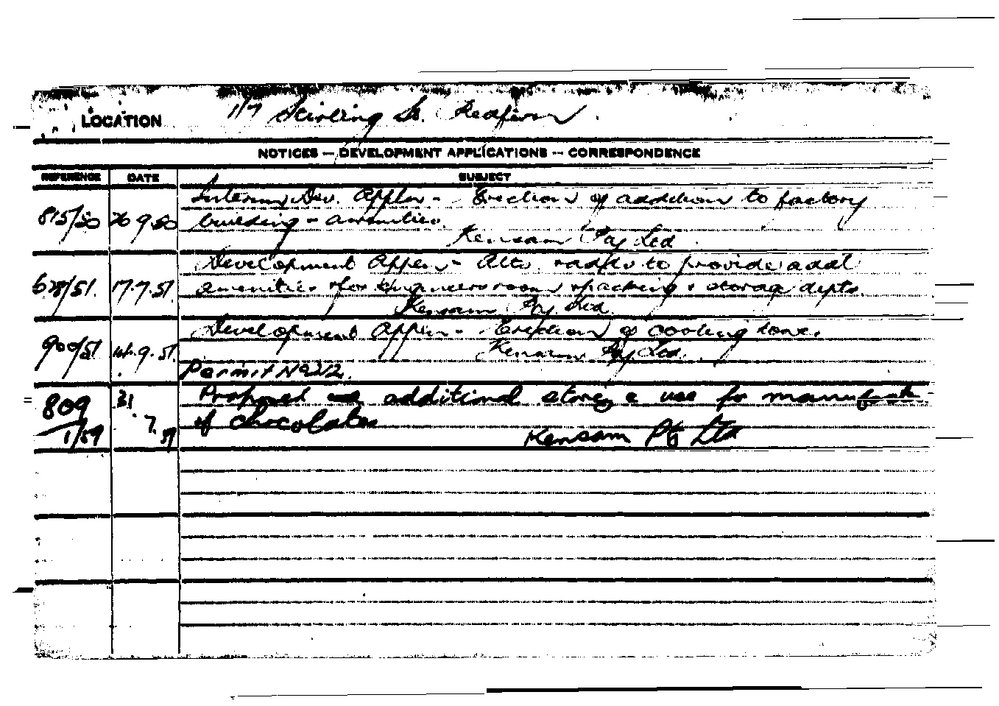 LOCATION 1/7 Stirling St. Redfern.
NOTICES — DEVELOPMENT APPLICATIONS — CORRESPONDENCE
REFERENCE DATE SUBJECT
815/50 26 9.50 Interim Dev. Appln - Erection of addition to factory
building - amenities.
Kensam Pty Ltd
628/51. 17.7.51 Development Appln - Alts. & addns to provide addl
amenities for engineers room & packing & storage depts.
Kensam Pty Ltd.
900/51 14.9.51 Development Appln - Erection of cooling tower.
Kensam Pty Ltd.
Permit No 212.
809/1/59 31.7.59 Proposed additional storey & use for manufact
of chocolates
Kensam Pty Ltd